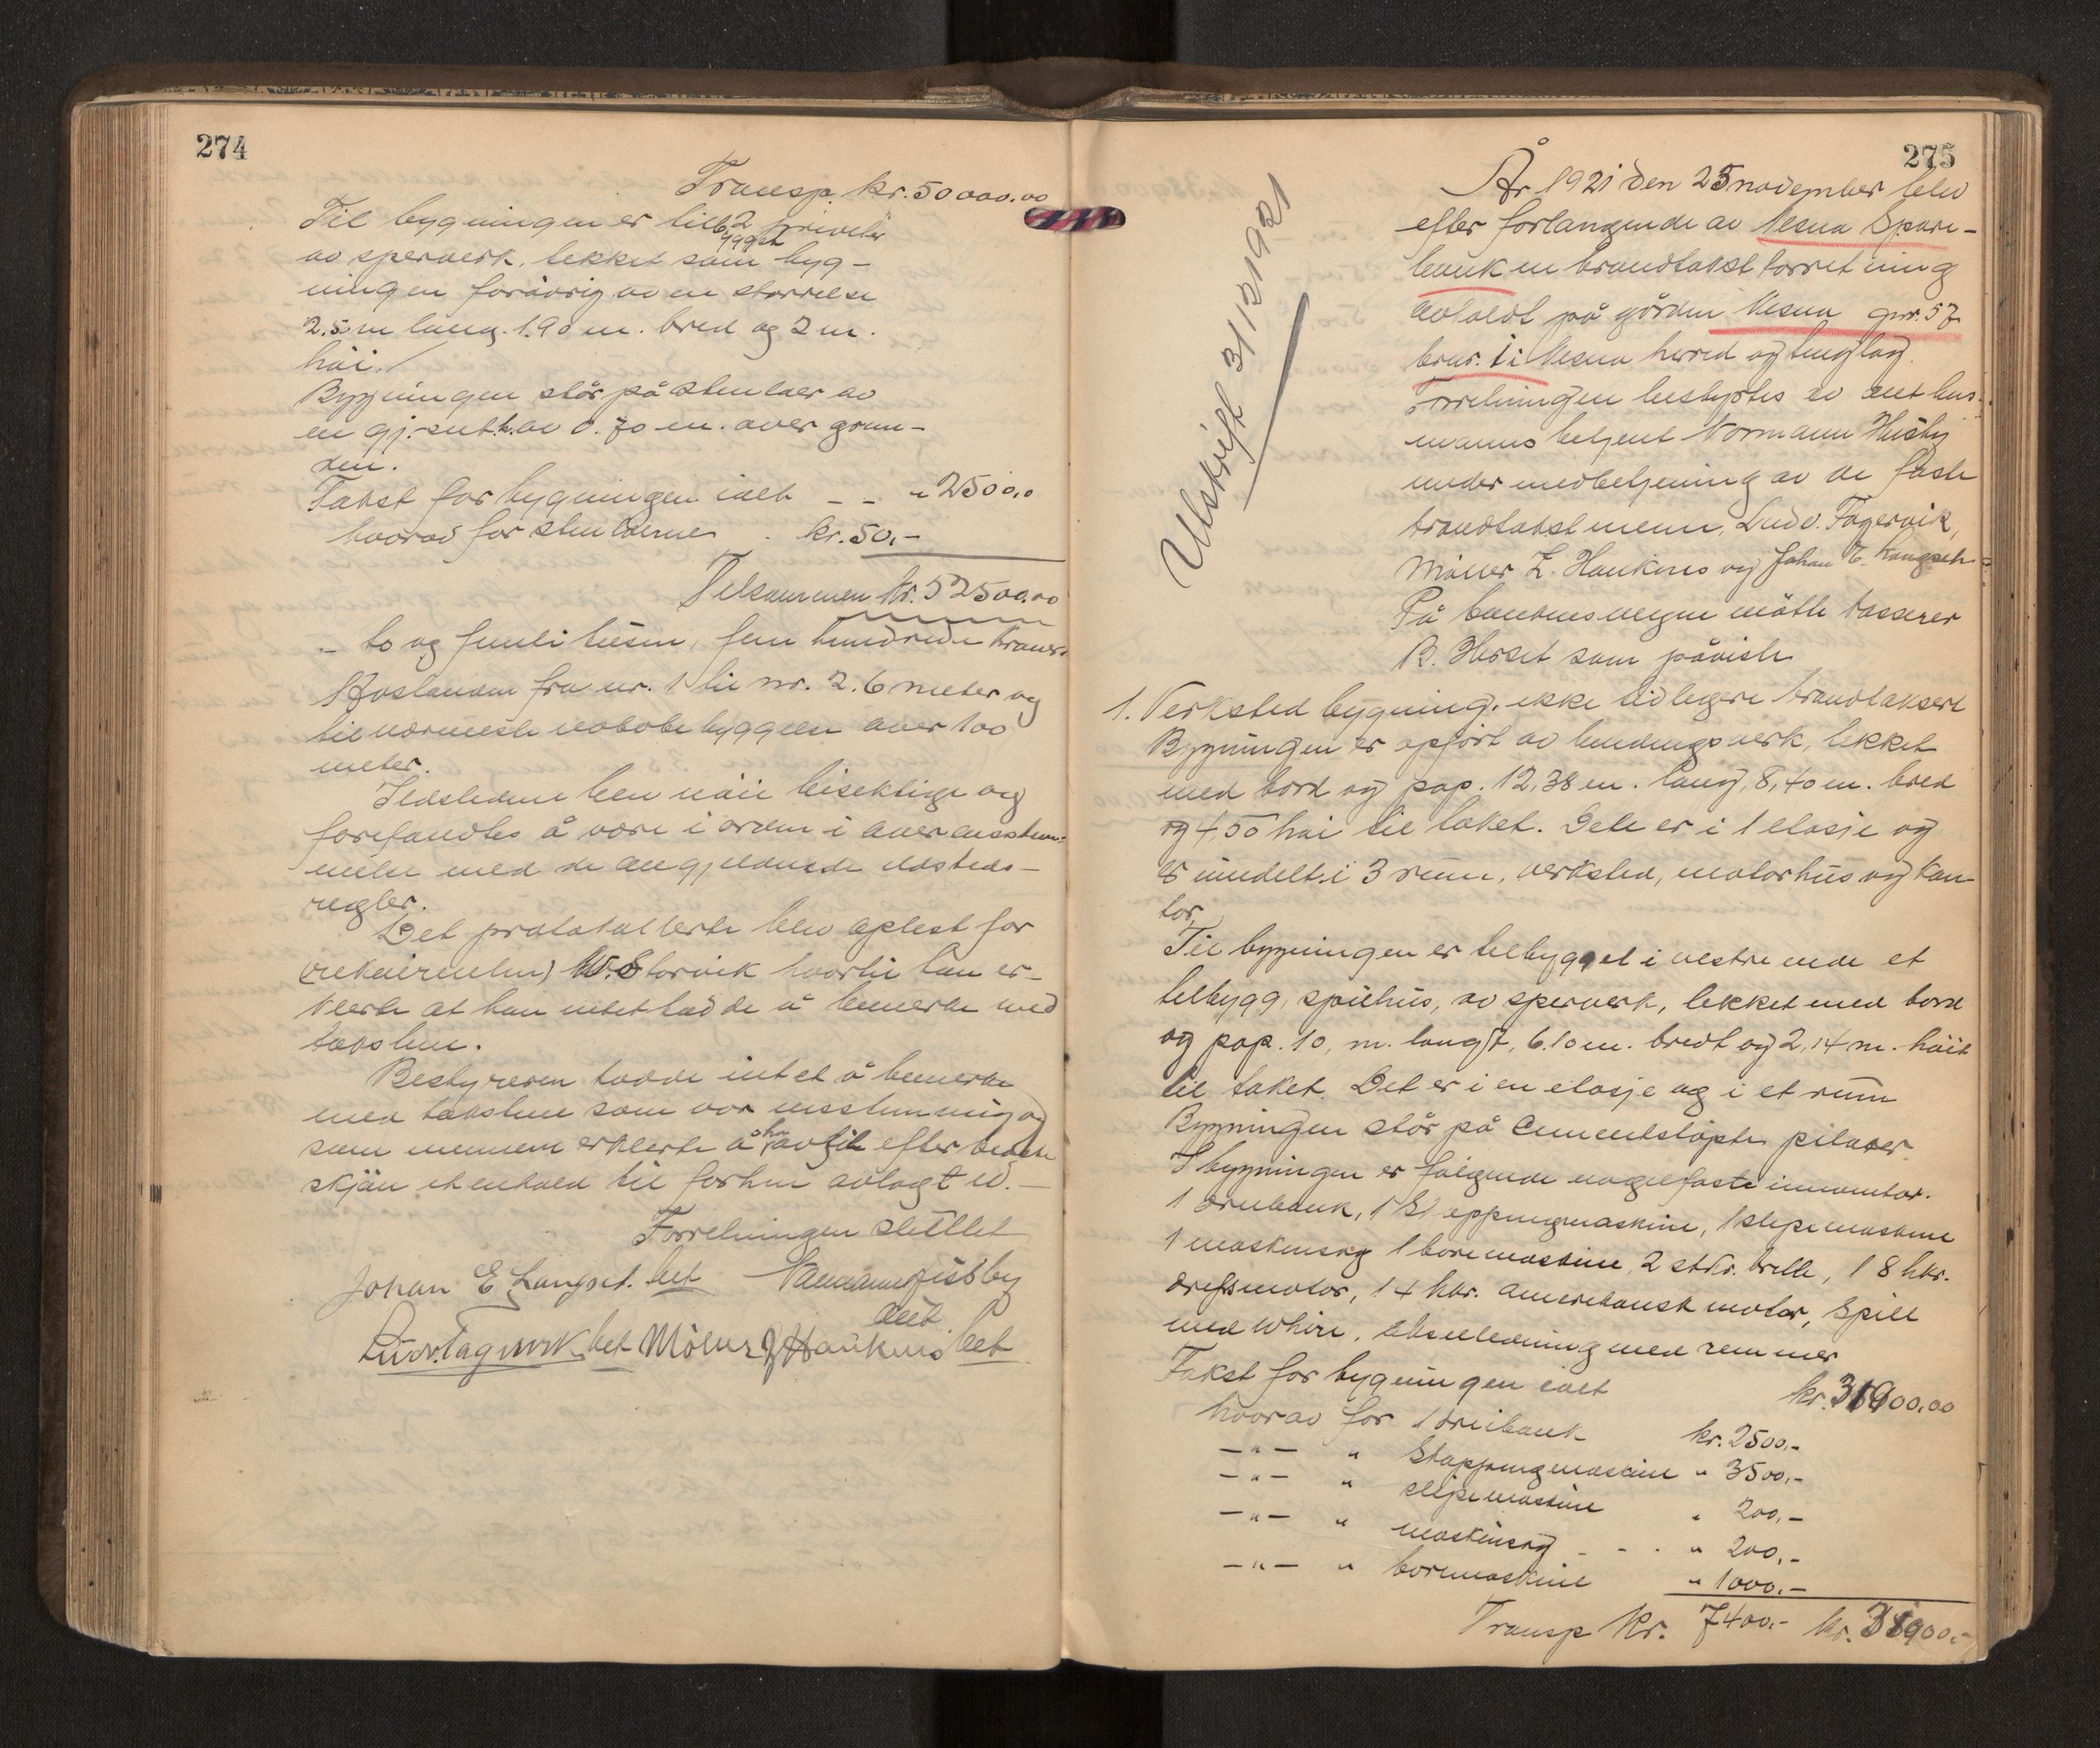 274
Transp. kr. 50000.00
Til bygningen er tilbygget 2 priveter
av sperverk, tekket som byg-
ningen forøvrig av en størrelse
2.5 m lang. 1.90 m. bred og 2 m.
høi.
Bygningen står på stenlaer av
en gj.snitt.h. av 0.70 m. over grun-
den.
Takst for bygningen ialt - - " 2500,0
hvorav for stenlaerne . kr. 50,-
Tilsammen kr. 52500.00
- to og femti tusen, fem hundrede kroner.
Avstanden fra nr. 1 til nr. 2. 6 meter og
til nærmeste nabobebyggelse over 100
meter.
Ildstedene blev nøie besiktige og
forefandtes å være i orden i overensstem-
melse med de angjeldende ildsteds-
regler.
Det protokollerte blev oplest for
(rekvirenten) W. Storvik hvortil han er-
klerte at han intet hadde å bemerke ved
taksten.
Bestyreren hadde intet å bemerke
med taksten som var enstemmig og
som mennene erklerte å ha avgit efter bedste
skjøn i henhold til forhen avlagt ed. -
Forretningen sluttet
Johan E Langset. bet Normann Husby
aut
Ludv. Fagervik bet Møller Z Hauknes bet
275
År 1921 den 25 november blev
efter forlangende av Nesna Spare-
bank en brandtakstforretning
avholdt på gården Nesna gnr. 57
brnr. 1 i Nesna herred og tinglag.
Forretningen bestyrtes av aut lens-
manns betjent Normann Husby
under medbetjening av de faste
brandtakstmenn, Ludv. Fagervik,
Møller Z. Haukenes og Johan E. Langseth.
På bankens vegne møtte kasserer
B. Horset som påviste
Utskrift 3/12 1921
1. Verksted bygning. ikke tidligere brandtaksert
Bygningen er opført av bindingsverk, tekket
med bord og pap. 12,38 m. lang, 8,40 m. bred
og 4,50 høi til taket. Dele er i 1 etasje og
er inndelt i 3 rum, verksted, motorhus og kon-
tor.
Til bygningen er tilbygget i vestre ende et
tilbygg, spilhus, av sperverk, tekket med bord
og pap. 10, m. langt, 6.10 m. bredt og 2,14 m. høit
til taket. Det er i en etasje og i et rum
Bygningen står på cementstøpte pilarer.
I bygningen er følgende nagelfaste inventar.
1 dreibank, 1 Støppingmaskine, 1 slipemaskine
1 maskinsag 1 boremaskine, 2 stkr. brille, 1 8 hkr.
drefsmotor, 1 4 hkr. amerikansk motor, spill
med whire, akselledning med remmer
Takst for bygningen ialt kr. 31900.00
hvorav for 1 dreibank kr. 2500.-
- " - " Støppingmaskine " 3500,-
- " - " slipemaskine " 200,-
- " - " maskinsag - - . " 200,-
- " - " boremaskine " 1000.-
Transp kr. 7400.- kr. 31900.-